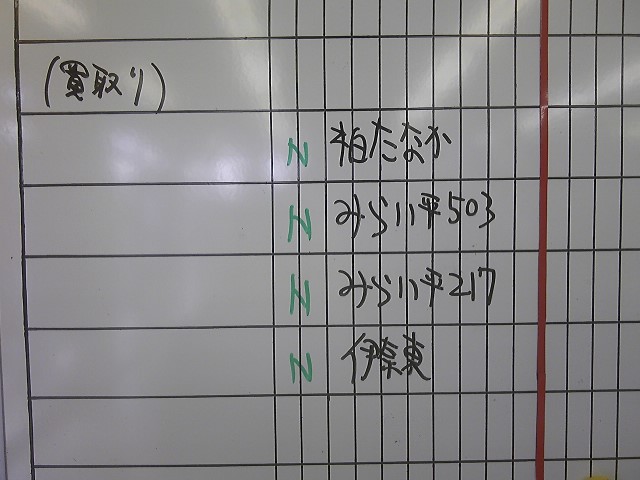 (買取り)
N 柏たなか
N みらい平503
N みらい平217
N 伊奈東